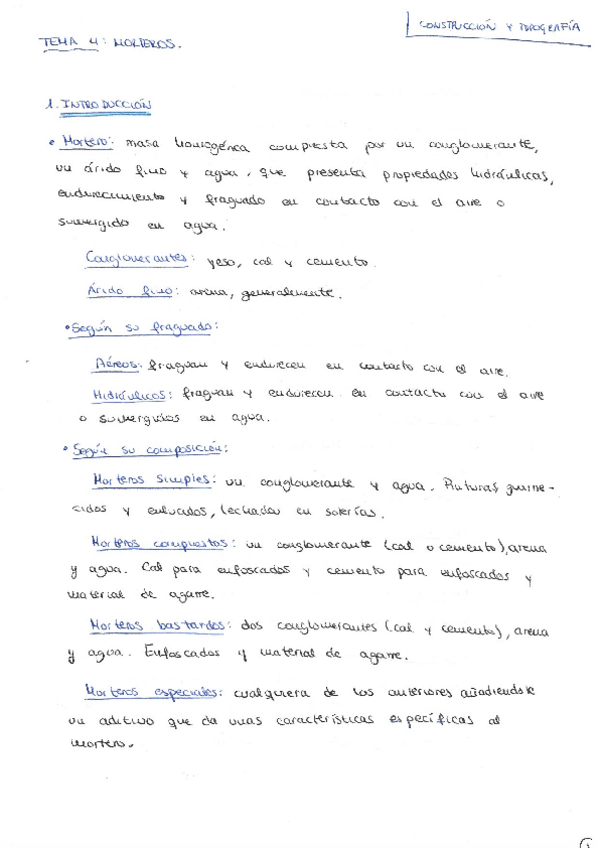 CONSTRUCCIÓN Y TOPOGRAFÍA
TEMA 4: MORTEROS.
1. INTRODUCCIÓN
• Mortero: masa homogénea compuesta por un conglomerante,
un árido fino y agua, que presenta propiedades hidráulicas,
endurecimiento y fraguado en contacto con el aire o
sumergido en agua.
Conglomerantes: yeso, cal y cemento.
Árido fino: arena, generalmente.
• Según su fraguado:
Aéreos: fraguan y endurecen en contacto con el aire.
Hidráulicos: fraguan y endurecen en contacto con el aire
o sumergidos en agua.
• Según su composición:
Morteros simples: un conglomerante y agua. Pinturas, guarne-
cidos y enlucidos, lechadas en solerías.
Morteros compuestos: un conglomerante (cal o cemento), arena
y agua. Cal para enfoscados y cemento para enfoscados y
material de agarre.
Morteros bastardos: dos conglomerantes (cal y cemento), arena
y agua. Enfoscados y material de agarre.
Morteros especiales: cualquiera de los anteriores añadiéndole
un aditivo que da unas características específicas al
mortero.